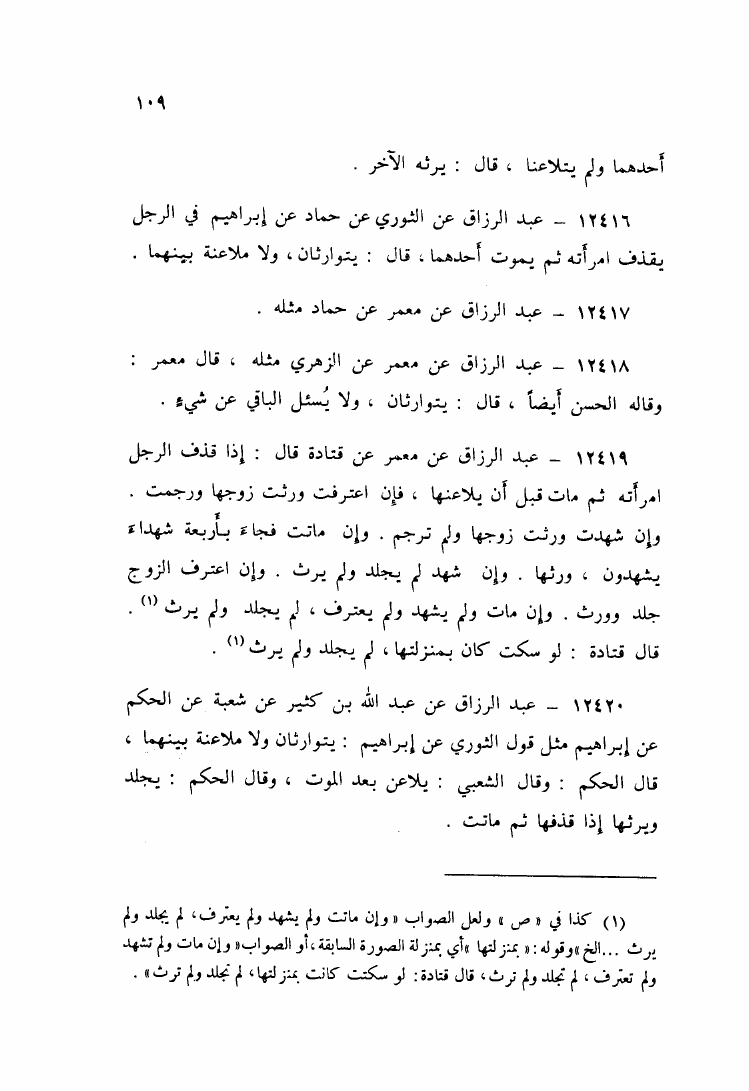 ١٠٩
أحدهما ولم يتلاعنا ، قال : يرثه الآخر .
١٢٤١٦ – عبد الرزاق عن الثوري عن حماد عن إبراهيم في الرجل
يقذف امرأته ثم يموت أحدهما ، قال : يتوارثان ، ولا ملاعنة بينهما .
١٢٤١٧ – عبد الرزاق عن معمر عن حماد مثله .
١٢٤١٨ – عبد الرزاق عن معمر عن الزهري مثله ، قال معمر :
وقاله الحسن أيضاً ، قال : يتوارثان ، ولا يُسئل الباقي عن شيءٍ .
١٢٤١٩ – عبد الرزاق عن معمر عن قتادة قال : إذا قذف الرجل
امرأته ثم مات قبل أن يلاعنها ، فإن اعترفت ورثت زوجها ورجمت .
وإن شهدت ورثت زوجها ولم ترجم . وإن ماتت فجاءَ بأَربعة شهداءَ
يشهدون ، ورثها . وإن شهد لم يجلد ولم يرث . وإن اعترف الزوج
جلد وورث . وإن مات ولم يشهد ولم يعترف ، لم يجلد ولم يرث (١) .
قال قتادة : لو سكت كان بمنزلتها ، لم يجلد ولم يرث (١) .
١٢٤٢٠ – عبد الرزاق عن عبد الله بن كثير عن شعبة عن الحكم
عن إبراهيم مثل قول الثوري عن إبراهيم : يتوارثان ولا ملاعنة بينهما ،
قال الحكم : وقال الشعبي : يلاعن بعد الموت ، وقال الحكم : يجلد
ويرثها إذا قذفها ثم ماتت .
(١) كذا في « ص » ولعل الصواب « وإن ماتت ولم يشهد ولم يعترف ، لم يجلد ولم
يرث ... الخ » وقوله : « بمنزلتها » أي بمنزلة الصورة السابقة ، أو الصواب « وإن مات ولم تشهد
ولم تعترف ، لم تجلد ولم ترث ، قال قتادة : لو سكتت كانت بمنزلتها ، لم تجلد ولم ترث » .